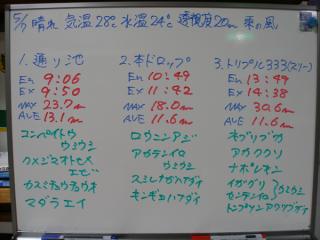 5/7 晴れ 気温28℃ 水温24℃ 透視度20m 東の風
1.通り池
En 9:06
Ex 9:50
MAX 23.7m
AVE 13.1m
コンペイトウ
ウミウシ
クメジマオトヒメ
エビ
カスミチョウチョウウオ
マダラエイ
2.本ドロップ
En 10:49
Ex 11:42
MAX 18.0m
AVE 11.6m
ロウニンアジ
アカテンイロ
ウミウシ
スミレナガハナダイ
キンギョハナダイ
3.トリプル333(スリー)
En 13:49
Ex 14:38
MAX 30.6m
AVE 11.6m
ネブリブカ
アカククリ
ナポレオン
イガグリ
センテンイロ
ウミウシ